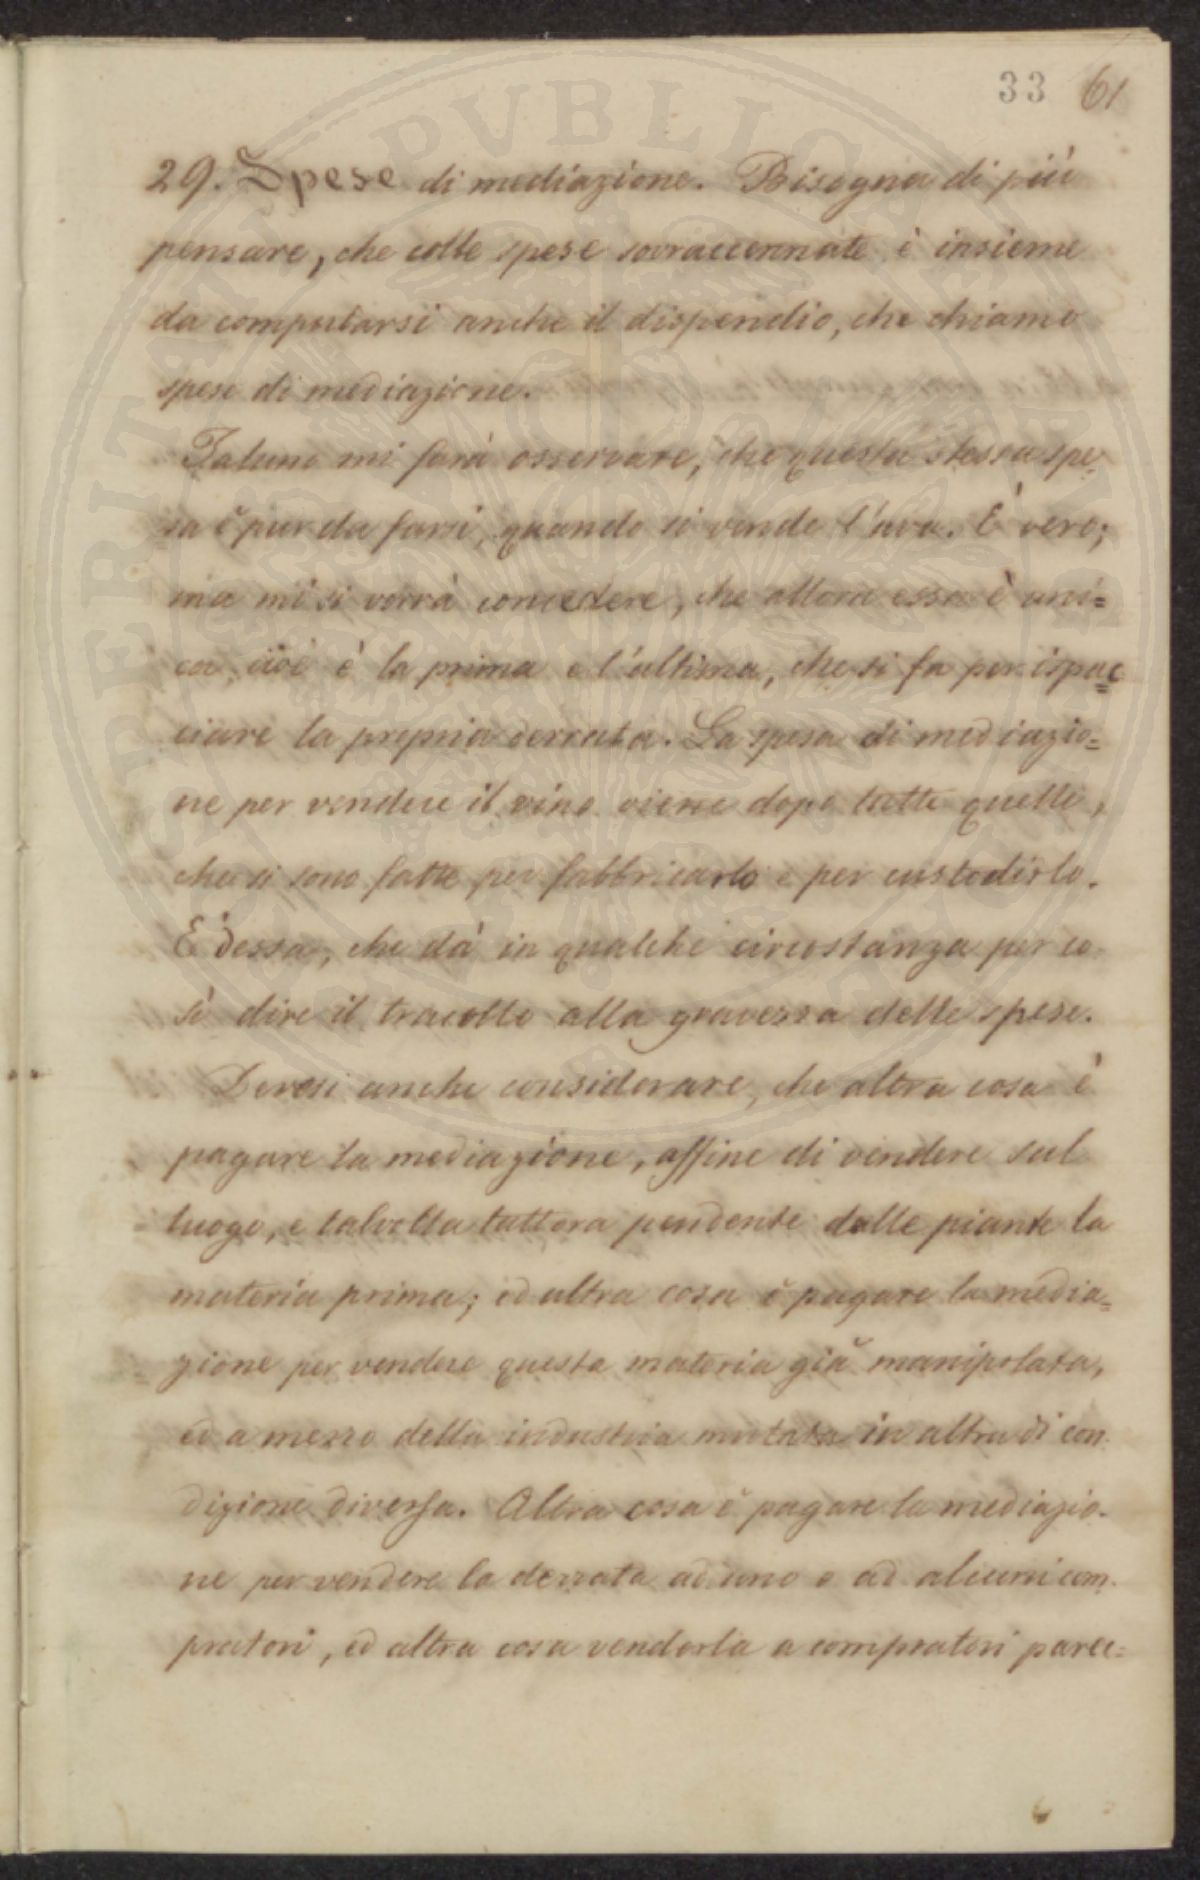 33 61
29. Spese di mediazione. Bisogna di più
pensare, che colle spese sovraccennate è insieme
da computarsi anche il dispendio, che chiamo
spese di mediazione.
Taluno mi farà osservare, che questa stessa spe-
sa è pur da farsi, quando si vende l'uva. È vero;
ma mi si vorrà concedere, che allora essa è uni=
ca, cioè è la prima e l'ultima, che si fa per ispac=
ciare la propria derrata. La spesa di mediazio=
ne per vendere il vino viene dopo tutte quelle,
che si sono fatte per fabbricarlo e per custodirlo.
È dessa, che dà in qualche circostanza per co-
sì dire il tracollo alla gravezza delle spese.
Devesi anche considerare, che altra cosa è
pagare la mediazione, affine di vendere sul
luogo, e talvolta tuttora pendente dalle piante la
materia prima; ed altra cosa è pagare la media=
zione per vendere questa materia già manipolata,
ed a mezzo della industria mutata in altra di con-
dizione diversa. Altra cosa è pagare la mediazio-
ne per vendere la derrata ad uno o ad alcuni com-
pratori, ed altra cosa venderla a compratori parec=
PVBLICAE